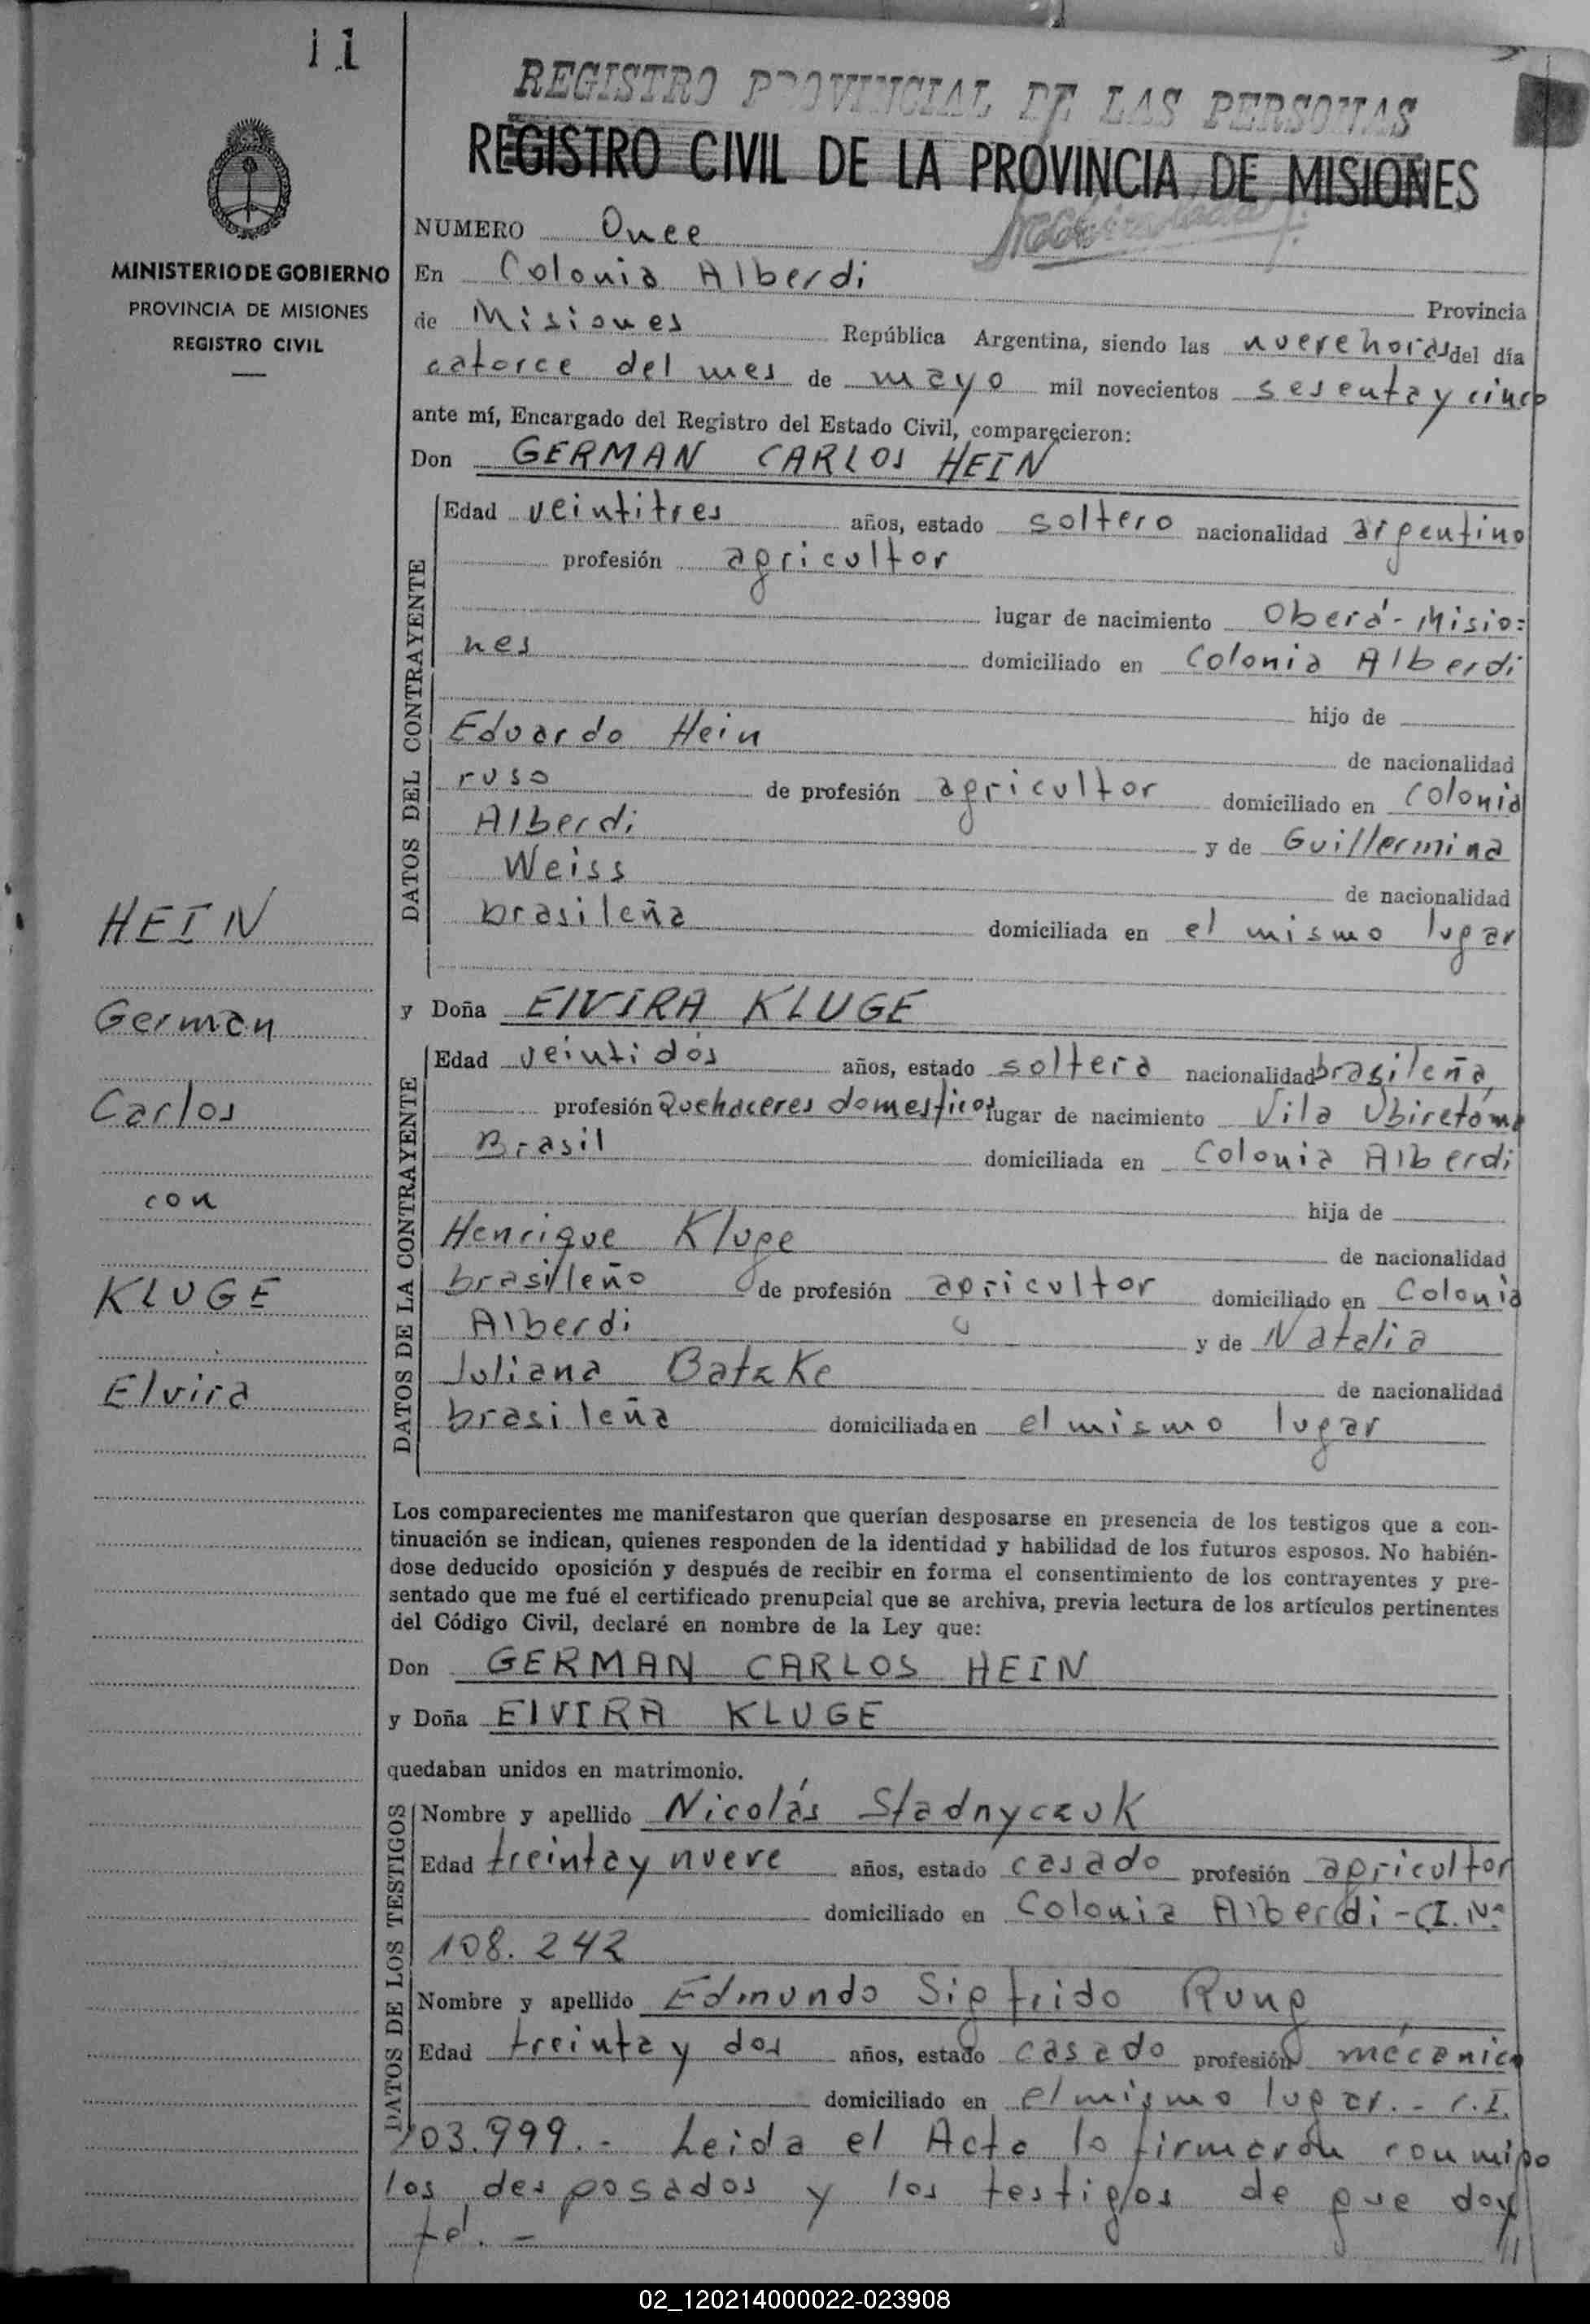 11
REGISTRO PROVINCIAL DE LAS PERSONAS
REGISTRO CIVIL DE LA PROVINCIA DE MISIONES
MINISTERIO DE GOBIERNO
PROVINCIA DE MISIONES
REGISTRO CIVIL
HEIN
German
Carlos
con
KLUGE
Elvira
NUMERO Once
En Colonia Alberdi Provincia
de Misiones República Argentina, siendo las nueve horas del día
catorce del mes de mayo mil novecientos sesenta y cinco
ante mí, Encargado del Registro del Estado Civil, comparecieron:
Don GERMAN CARLOS HEIN
DATOS DEL CONTRAYENTE
Edad veintitres años, estado soltero nacionalidad argentino
profesión agricultor
lugar de nacimiento Oberá - Misio=
nes domiciliado en Colonia Alberdi
hijo de
Eduardo Hein de nacionalidad
ruso de profesión agricultor domiciliado en Colonia
Alberdi y de Guillermina
Weiss de nacionalidad
brasileña domiciliada en el mismo lugar
y Doña ElVIRA KLUGE
DATOS DE LA CONTRAYENTE
Edad veintidós años, estado soltera nacionalidad brasileña,
profesión Quehaceres domesticos lugar de nacimiento Vila Ubiretama
Brasil domiciliada en Colonia Alberdi
hija de
Henrique Kluge de nacionalidad
brasileño de profesión agricultor domiciliado en Colonia
Alberdi y de Natalia
Juliana Batzke de nacionalidad
brasileña domiciliada en el mismo lugar
Los comparecientes me manifestaron que querían desposarse en presencia de los testigos que a con-
tinuación se indican, quienes responden de la identidad y habilidad de los futuros esposos. No habién-
dose deducido oposición y después de recibir en forma el consentimiento de los contrayentes y pre-
sentado que me fué el certificado prenupcial que se archiva, previa lectura de los artículos pertinentes
del Código Civil, declaré en nombre de la Ley que:
Don GERMAN CARLOS HEIN
y Doña ElVIRA KLUGE
quedaban unidos en matrimonio.
DATOS DE LOS TESTIGOS
Nombre y apellido Nicolás Stadnyczuk
Edad treinta y nueve años, estado casado profesión agricultor
domiciliado en Colonia Alberdi - C.I. Nº
108.242
Nombre y apellido Edmundo Sigfrido Rung
Edad treinta y dos años, estado casado profesión mécanico
domiciliado en el mismo lugar. - C.I.
203.999. - Leida el Acta lo firmarón conmigo
los desposados y los testigos de que doy
fé. -
02_120214000022-023908